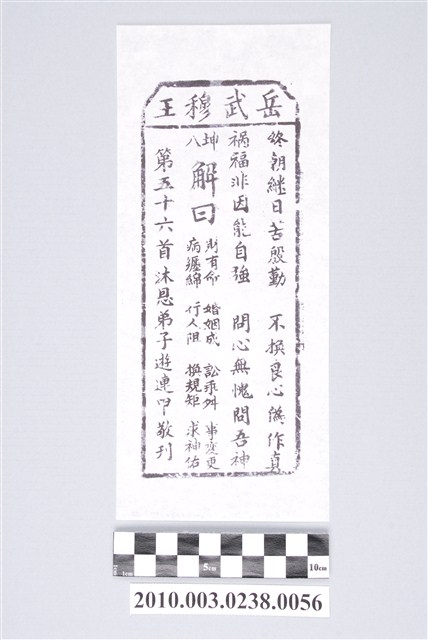 岳武穆王
終朝繼日苦殷勤 不換良心偽作真
禍福非因能自強 問心無愧問吾神
坤八
解曰
財有命 婚姻成 訟乖舛 事變更
病纏綿 行人阻 換規矩 求神佑
第五十六首沐恩弟子遊連甲敬刊
1cm 5cm 10cm
2010.003.0238.0056